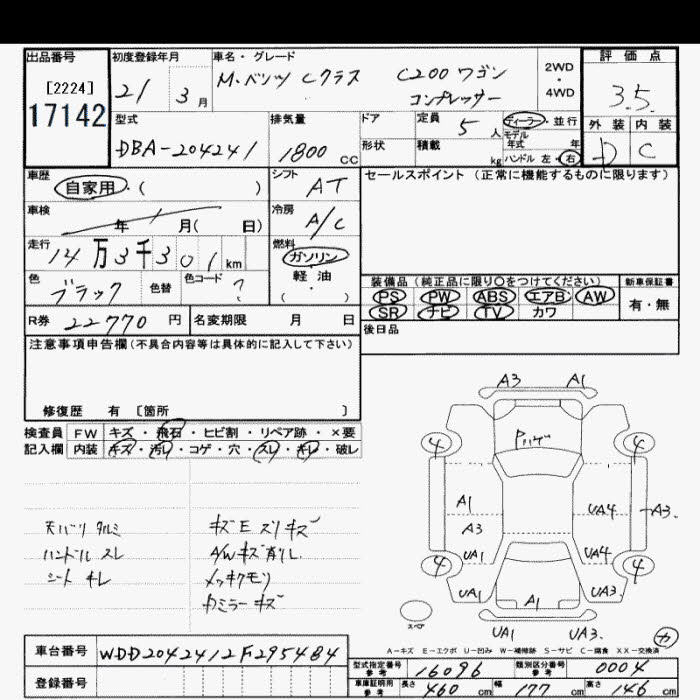 出品番号 初度登録年月 車名・グレード 評価点
[2224] 17142
21 3月
M.ベンツ Cクラス C200 ワゴン
コンプレッサー
2WD・4WD
3.5
外装 内装
D C
型式 排気量 ドア 定員 5人 ディーラー・並行
DBA-204241 1800cc
形状 積載 kg モデル年式 年
ハンドル 左・右
車歴 自家用・( ) シフト AT
セールスポイント(正常に機能するものに限ります)
車検 年 月( 日) 冷房 A/C
走行 14万3千301km 燃料 ガソリン・軽油・( )
色 ブラック 色替 色コード ?
装備品(純正品に限り〇をつけてください) 新車保証書
PS PW ABS エアB AW 有・無
SR ナビ TV カワ
R券 22770円 名変期限 月 日
後日品
注意事項申告欄(不具合内容等は具体的に記入して下さい)
修復歴 有 〔箇所 〕
検査員 FW キズ・飛石・ヒビ割・リペア跡・×要
記入欄 内装 キズ・汚レ・コゲ・穴・スレ・キレ・破レ
天バリ タルミ
ハンドル スレ
シート キレ
キズ E スリキズ
A/W キズ 削レ
メッキクモリ
Dミラー キズ
A3 A1
4 4
A1 UA4 A3
A3
UA1 UA4
4 4
UA1 A1 UA3
スペア UA1 UA3 カ
A-キズ E-エクボ U-凹み W-補修跡 S-サビ C-腐食 XX-交換済
車台番号 WDD2042412F295484
登録番号
型式指定番号 参考 16096 類別区分番号 参考 0004
車庫証明用 参考 長さ 460cm 幅 177cm 高さ 146cm